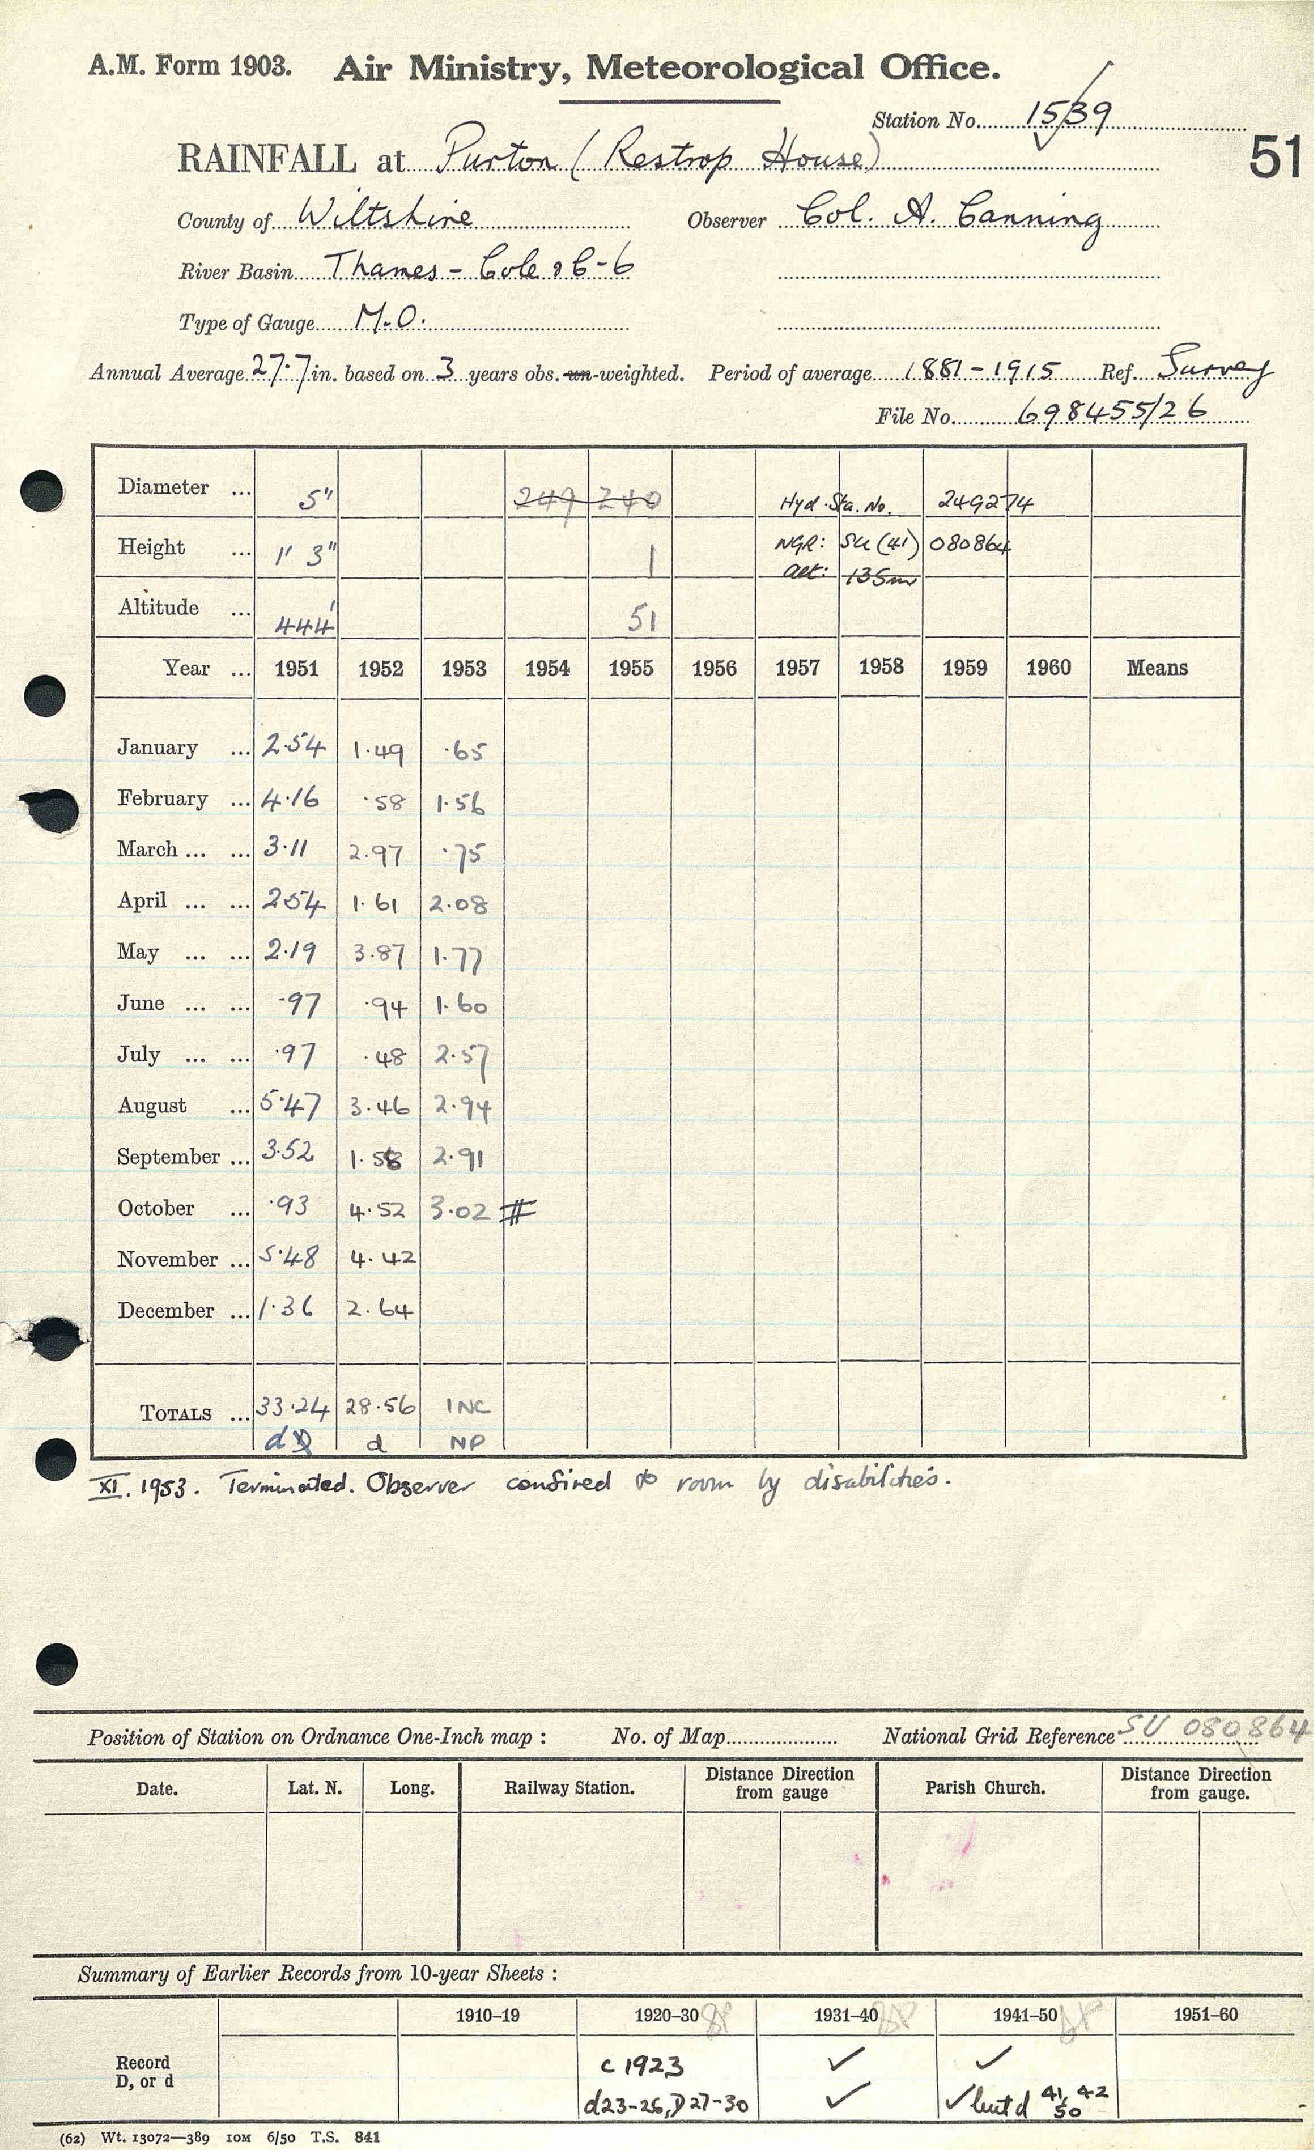 A.M. Form 1903. Air Ministry, Meteorological Office.
Station No. 15/39
RAINFALL at Purton (Restrop House) 51
County of Wiltshire Observer Col. A. Canning
River Basin Thames - Cole & C-6
Type of Gauge M.O.
Annual Average 27.7 in. based on 3 years obs. un-weighted. Period of average 1881-1915 Ref. Survey
File No. 698455/26
Diameter ... 5" 249 240 Hyd. Sta. No. 249274
Height ... 1' 3" 1 NGR: SU (41) 080864
alt: 135m
Altitude ... 444' 51
Year ... 1951 1952 1953 1954 1955 1956 1957 1958 1959 1960 Means
January ... 2.54 1.49 .65
February ... 4.16 .58 1.56
March ... ... 3.11 2.97 .75
April ... ... 2.54 1.61 2.08
May ... ... 2.19 3.87 1.77
June ... ... .97 .94 1.60
July ... ... .97 .48 2.57
August ... 5.47 3.46 2.94
September ... 3.52 1.58 2.91
October ... .93 4.52 3.02 #
November ... 5.48 4.42
December ... 1.36 2.64
TOTALS ... 33.24 28.56 INC
d d NP
XI. 1953. Terminated. Observer confined to room by disabilities.
Position of Station on Ordnance One-Inch map : No. of Map National Grid Reference SU 080864
Date. Lat. N. Long. Railway Station. Distance Direction from gauge Parish Church. Distance Direction from gauge.
Summary of Earlier Records from 10-year Sheets :
1910-19 1920-30 1931-40 1941-50 1951-60
Record c 1923 ✓ ✓
D, or d d23-26, D27-30 ✓ ✓ but d 41, 42 50
(62) Wt. 13072—389 10M 6/50 T.S. 841